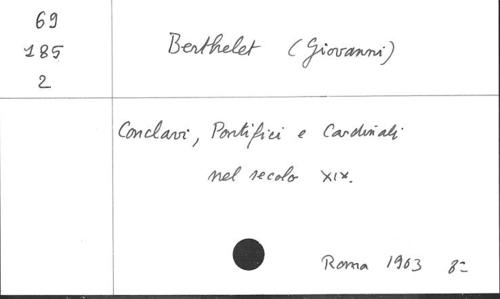 69
185
2
Berthelet (Giovanni)
Conclavi, Pontifici e Cardinali
nel secolo XIX.
Roma 1903 8=